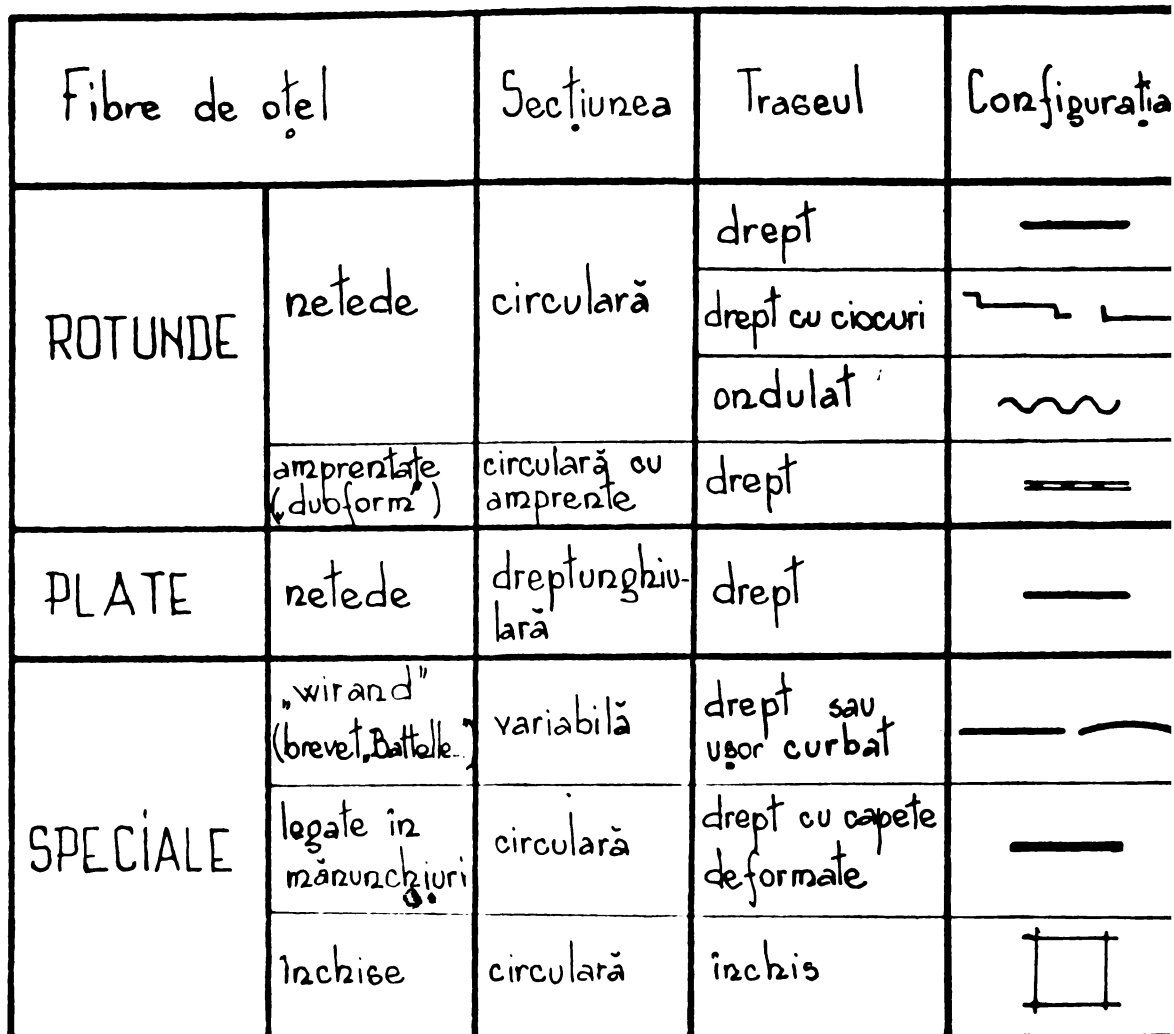 Fibre de oțel
Secțiunea
Traseul
Configurația
ROTUNDE
netede
circulară
drept
drept cu ciocuri
ondulat
amprentate
(„duoform")
circulară cu
amprente
drept
PLATE
netede
dreptunghiu-
lară
drept
SPECIALE
„wirand"
(brevet „Battelle")
variabilă
drept sau
ușor curbat
legate în
mănunchiuri
circulară
drept cu capete
deformate
închise
circulară
închis